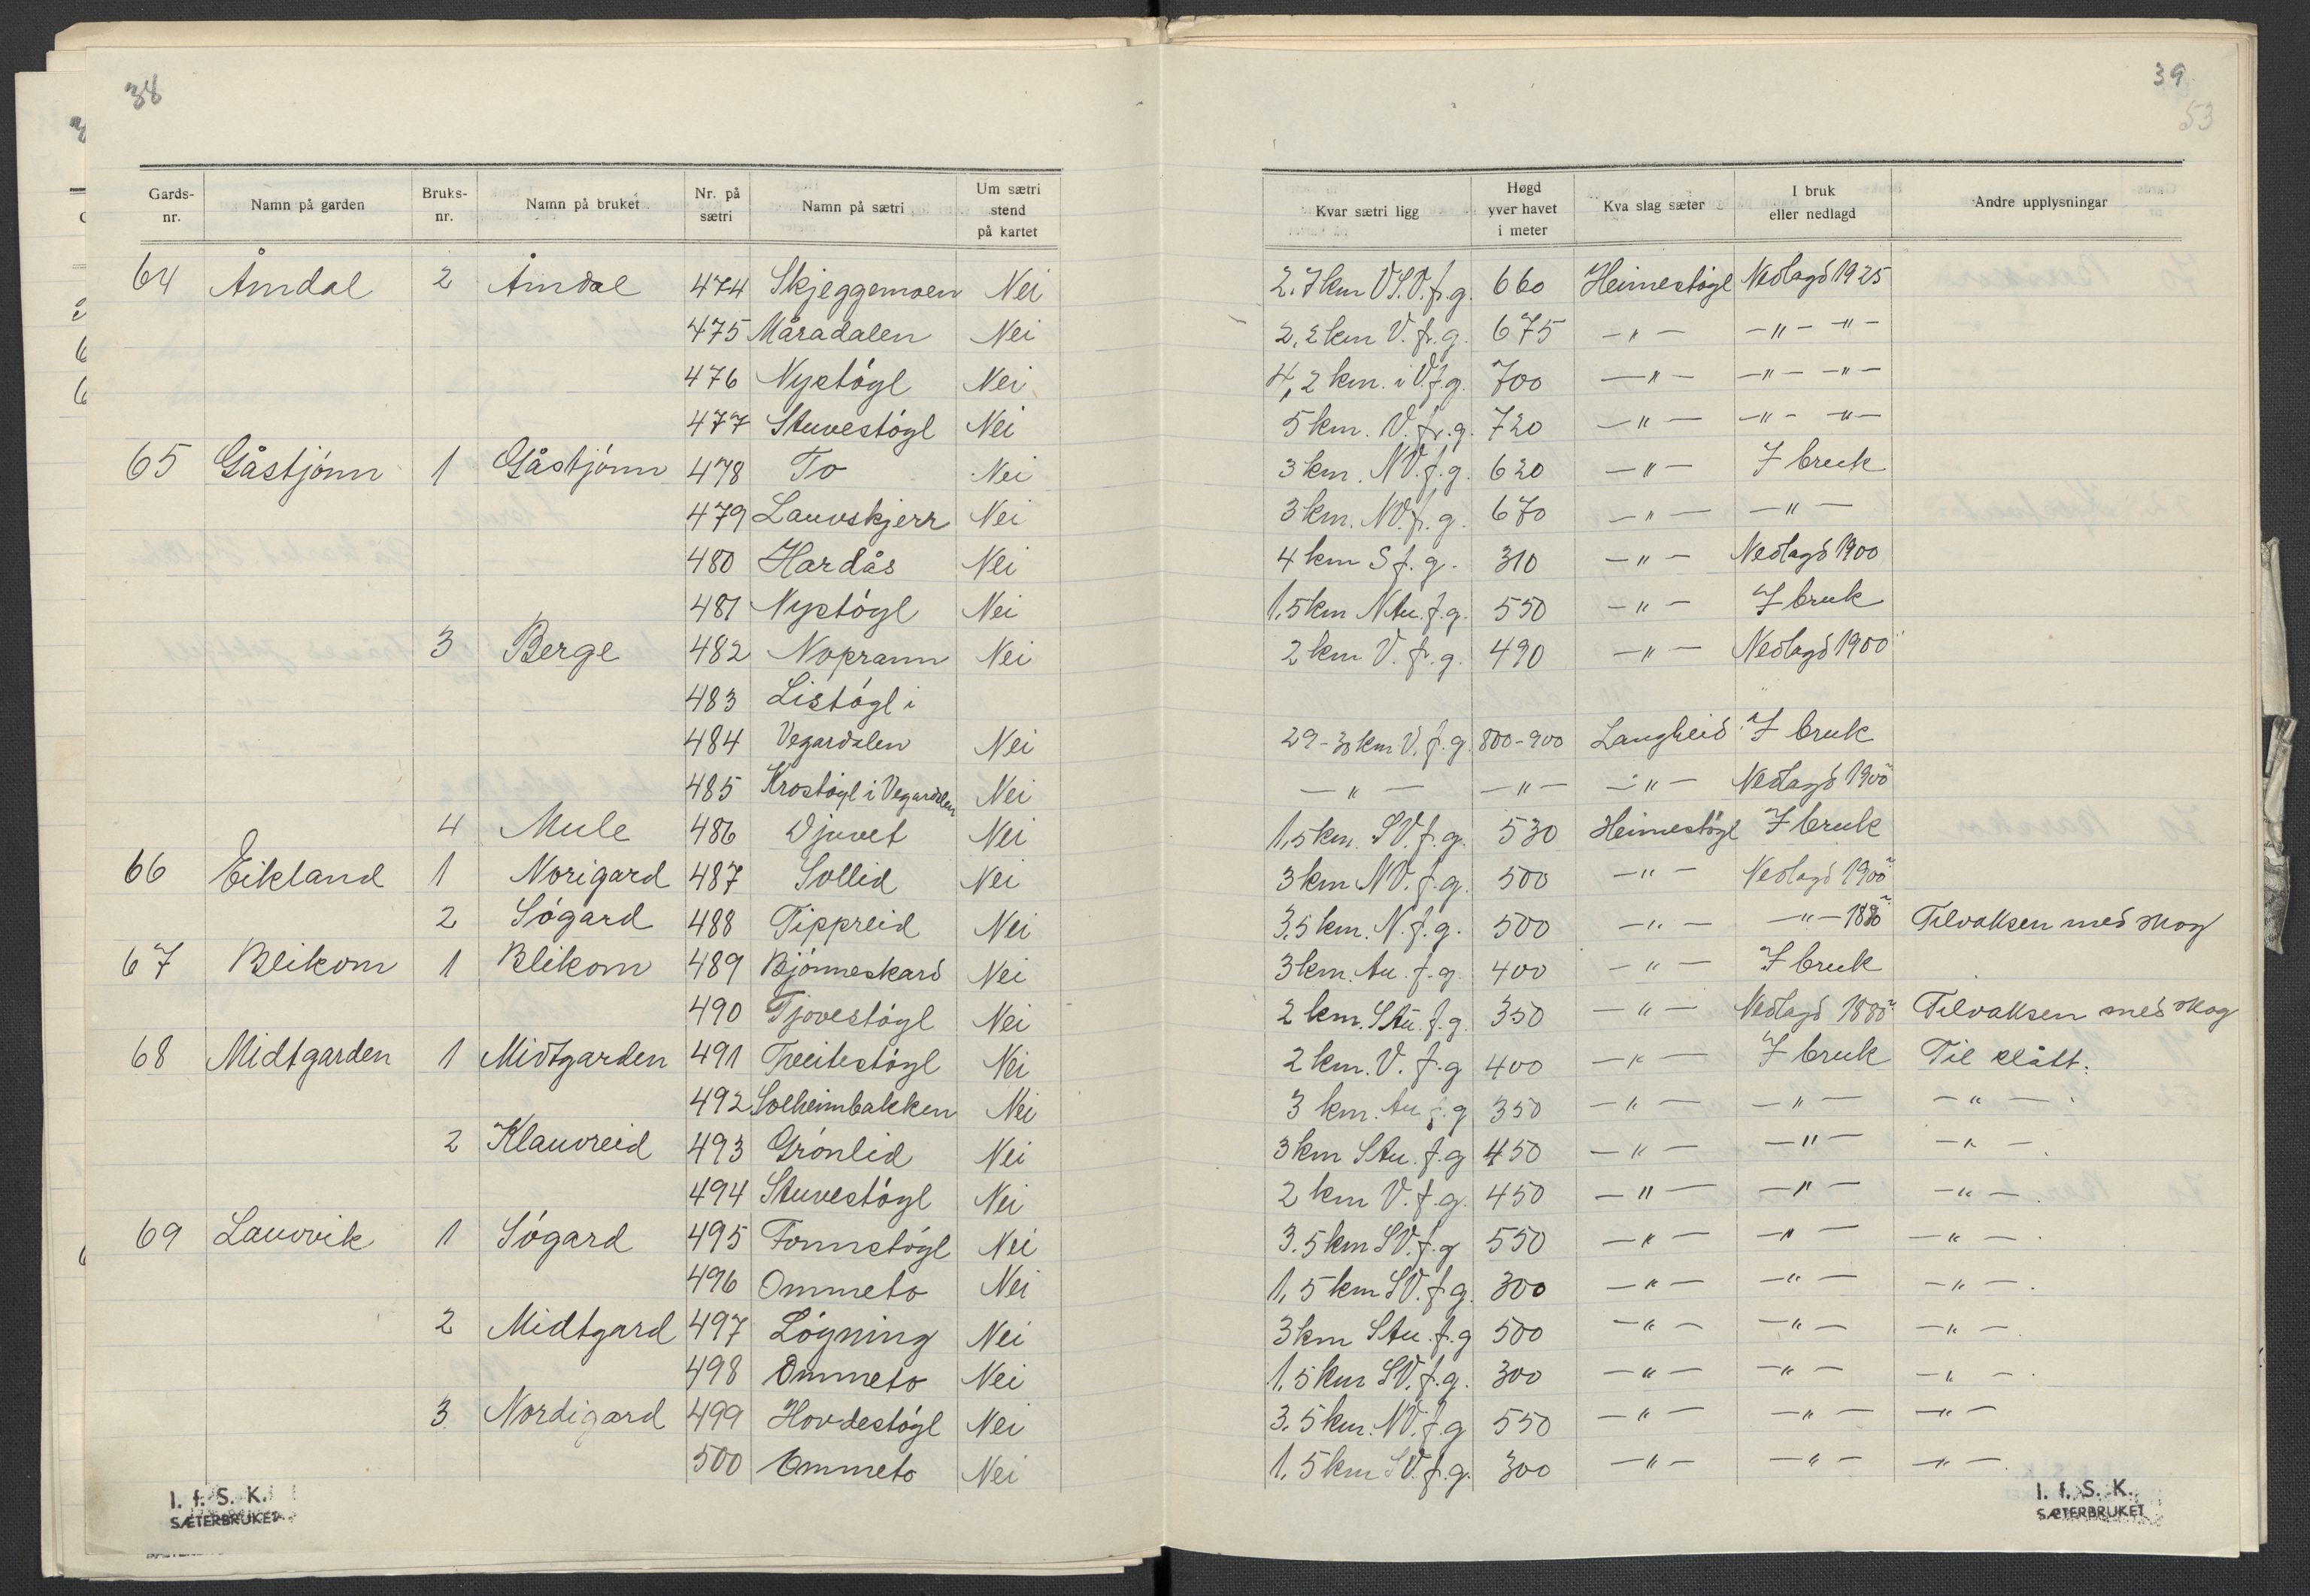 38
Gards-nr. Namn på garden Bruks-nr. Namn på bruket Nr. på sætri Namn på sætri Um sætri stend på kartet
64 Åmdal 2 Åmdal 474 Skjeggemoen Nei
475 Måradalen Nei
476 Nystógl Nei
477 Stuvestógl Nei
65 Gåstjónn 1 Gåstjónn 478 To Nei
479 Lauvskjerr Nei
480 Hardås Nei
481 Nystógl Nei
3 Berge 482 Noprann Nei
483 Listógl i
484 Vegardalen Nei
485 Krostógl i Vegardalen Nei
4 Mule 486 Djuvet Nei
66 Eikland 1 Norigard 487 Sollid Nei
2 Sógard 488 Tippreid Nei
67 Blikom 1 Blikom 489 Bjónneskard Nei
490 Tjovestógl Nei
68 Midtgarden 1 Midtgarden 491 Tveitestógl Nei
492 Solheimbakken Nei
2 Klauvreid 493 Grónlid Nei
494 Stuvestógl Nei
69 Lauvvik 1 Sógard 495 Fonnstógl Nei
496 Ommeto Nei
2 Midtgard 497 Lógning Nei
498 Ommeto Nei
3 Nordigard 499 Hovdestógl Nei
500 Ommeto Nei
I. f. S. K.
SÆTERBRUKET
39
53
Kvar sætri ligg Høgd yver havet i meter Kva slag sæter I bruk eller nedlagd Andre upplysningar
2.7 km VSV. f. g. 660 Heimestógl Nedlagd 1925
2,2 km V. fr. g. 675 -"- -"- -"-
4,2 km. i V f. g. 700 -"- -"- -"-
5 km. V. fr. g. 720 -"- -"- -"-
3 km. NV. f. g. 620 -"- I bruk
3 km. NV. f. g. 670 -"- -"-
4 km S f. g. 310 -"- Nedlagd 1900
1,5 km NAu. f. g. 550 -"- I bruk
2 km V. fr. g. 490 -"- Nedlagd 1900
29-30 km V. f. g. 800-900 Langheid I bruk
-"- -"- -"- Nedlagd 1900
1,5 km. SV. f. g. 530 Heimestógl I bruk
3 km NV. f. g. 500 -"- Nedlagd 1900
3,5 km. N. f. g. 500 -"- -"- 1880 Tilvaksen med skog
3 km. Au. f. g. 400 -"- I bruk
2 km. SAu. f. g. 350 -"- Nedlagd 1880 Tilvaksen med skog
2 km. V. f. g 400 -"- I bruk Til slått.
3 km. Au f. g 350 -"- -"- -"-
3 km SAu. f. g 450 -"- -"- -"-
2 km V. f. g. 450 -"- -"- -"-
3.5 km SV. f. g 550 -"- -"- -"-
1,5 km SV. f. g. 300 -"- -"- -"-
3 km SAu. f. g 500 -"- -"- -"-
1.5 km SV. f. g. 300 -"- -"- -"-
3.5 km. NV. f. g 550 -"- -"- -"-
1,5 km SV. f. g. 300 -"- -"- -"-
I. f. S. K.
SÆTERBRUKET